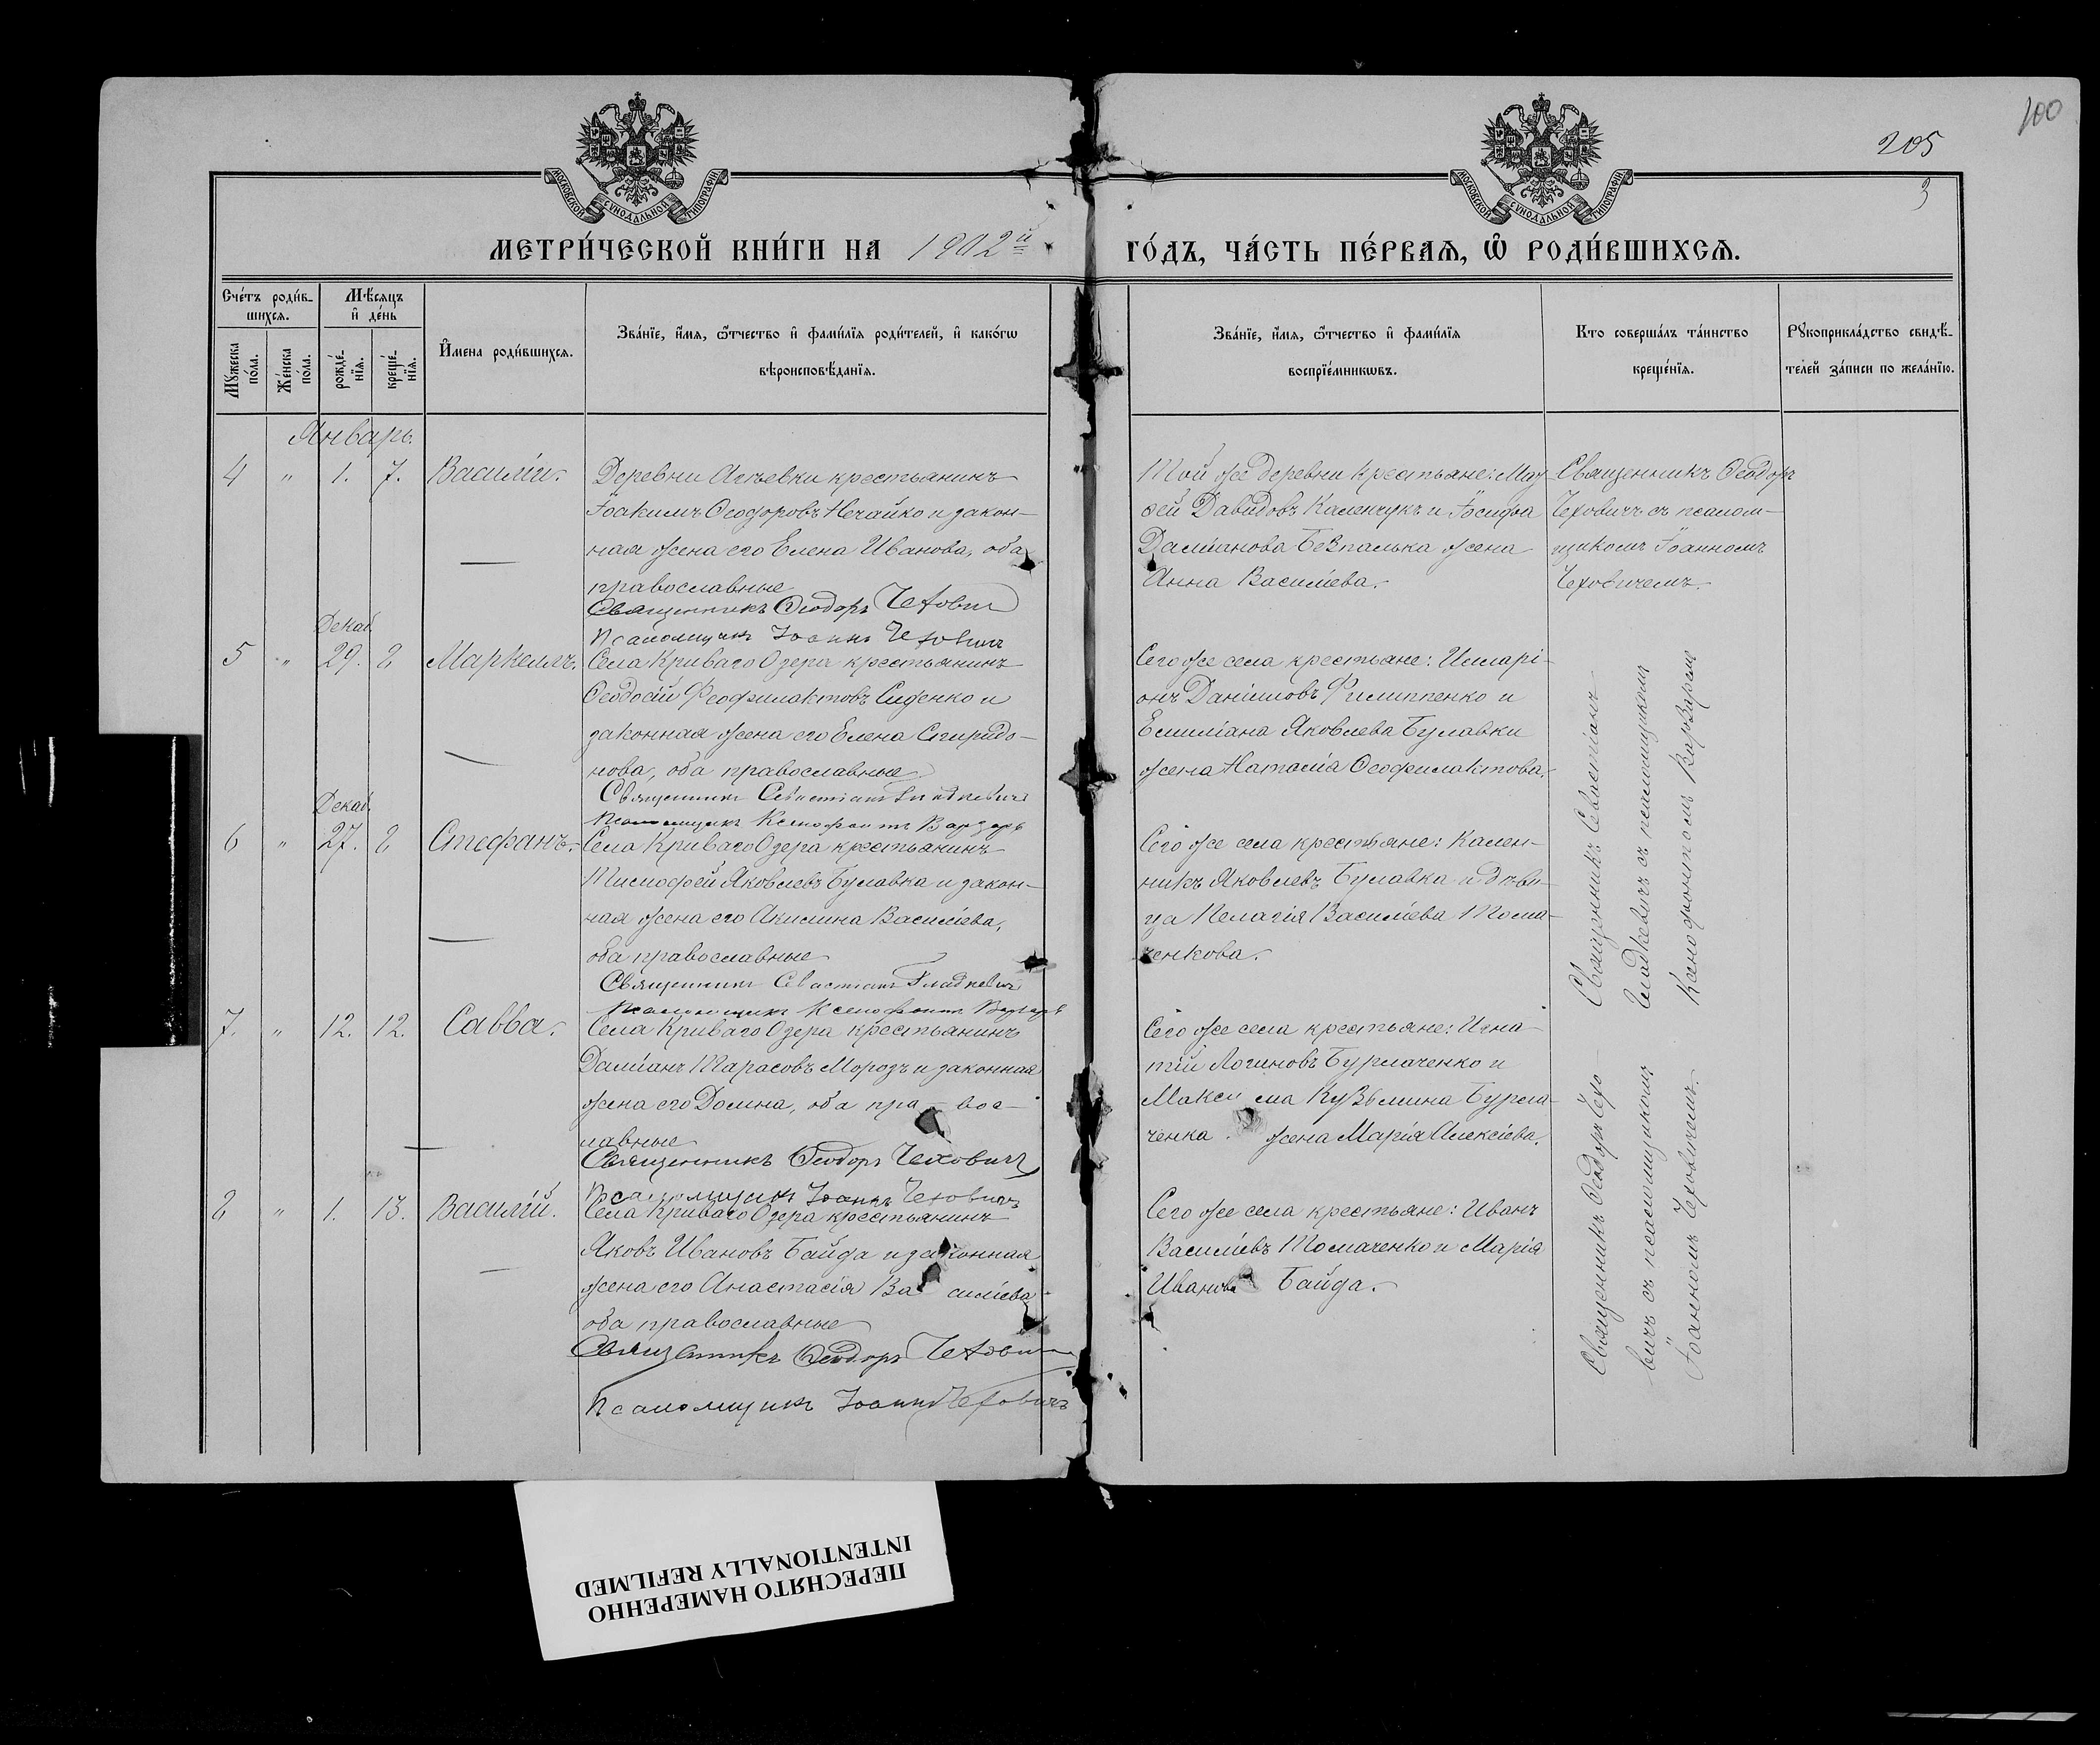 100
205
3
МОСКОВСКОЙ СУНОДАЛЬНОЙ ТИПОГРАФІИ
МОСКОВСКОЙ СУНОДАЛЬНОЙ ТИПОГРАФІИ
МЕТРИ́ЧЕСКОЙ КНИ́ГИ НА 1902й
ГО́ДЪ, ЧА́СТЬ ПЕ́РВАЯ, Ѡ҆ РОДИ́ВШИХСЯ.
Сче́тъ роди́в-
шихся.
Мѣ́сяцъ
и҆ де́нь
Мꙋ́жеска
по́ла.
Же́нска
по́ла.
рожде́-
нїя.
креще́-
нїя.
И҆мена роди́вшихся.
Зва́нїе, и҆́мя, ѻ҆́тчество и҆ фами́лїя роди́телей, и҆ како́гѡ
вѣроисповѣ́данїя.
Зва́нїе, и҆́мя, ѻ҆́тчество и҆ фами́лїя
воспрїе́мникѡвъ.
Кто соверша́лъ та́инство
креще́нїя.
Рꙋкоприкла́дство свидѣ́-
телей за́писи по жела́нїю.
Январь.
4 " 1. 7. Василій.
Деревни Агѣевки крестьянинъ
Іоакимъ Ѳеодоровъ Нечайко и закон-
ная жена его Елена Иванова, оба
православные
Священникъ Ѳеодоръ Чехович
Псаломщикъ Іоаннъ Чеховичъ
Той же деревни крестьяне: Мой-
сей Давидовъ Каленчукъ и Іосифа
Даміанова Безпалька жена
Анна Василіева.
Священникъ Ѳеодоръ
Чеховичъ съ псалом-
щикомъ Іоанномъ
Чеховичемъ.
Декаб.
5 " 29. 8 Маркеллъ.
Села Криваго Озера крестьянинъ
Ѳеодосій Феофилактовъ Сиденко и
законная жена его Елена Спиридо-
нова, оба православные
Священникъ Севастіанъ Гладкевичъ
Псаломщикъ Ксенофонтъ Варзарь
Сего же села крестьяне: Иларі-
онъ Даніиловъ Филиппенко и
Емиліана Яковлева Булавки
жена Наталія Ѳеофилактова.
Декаб.
6 " 27. 8 Стефанъ.
Села Криваго Озера крестьянинъ
Тимофей Яковлевъ Булавка и закон-
ная жена его Акилина Василіева,
оба православные
Священникъ Севастіанъ Гладкевичъ
Псаломщикъ Ксенофонтъ Варзарь
Сего же села крестьяне: Кален-
никъ Яковлевъ Булавка и дѣви-
ца Пелагія Василіева Толма-
ченкова.
Священникъ Севастіанъ
Гладкевичъ съ псаломщикомъ
Ксенофонтомъ Варзаремъ
7. " 12. 12. Савва.
Села Криваго Озера крестьянинъ
Даміанъ Тарасовъ Морозъ и законная
жена его Домна, оба пра- вос-
лавные
Священникъ Ѳеодоръ Чеховичъ
Псаломщикъ Іоаннъ Чеховичъ
Сего же села крестьяне: Игна-
тій Логиновъ Бурлаченко и
Макси ма Кузьмина Бурла-
ченка жена Марія Алексіева.
8 " 1. 13. Василій.
Села Криваго Озера крестьянинъ
Яковъ Ивановъ Байда и законная
жена его Анастасія Ва силіева
оба православные
Священникъ Ѳеодоръ Чехович
Псаломщикъ Іоаннъ Чеховичъ
Сего же села крестьяне: Иванъ
Василіевъ Толмаченко и Марія
Иванова Байда.
Священникъ Ѳеодоръ Чехо-
вичъ съ псаломщикомъ
Іоанномъ Чеховичемъ.
ПЕРЕСНЯТО НАМЕРЕННО
INTENTIONALLY REFILMED